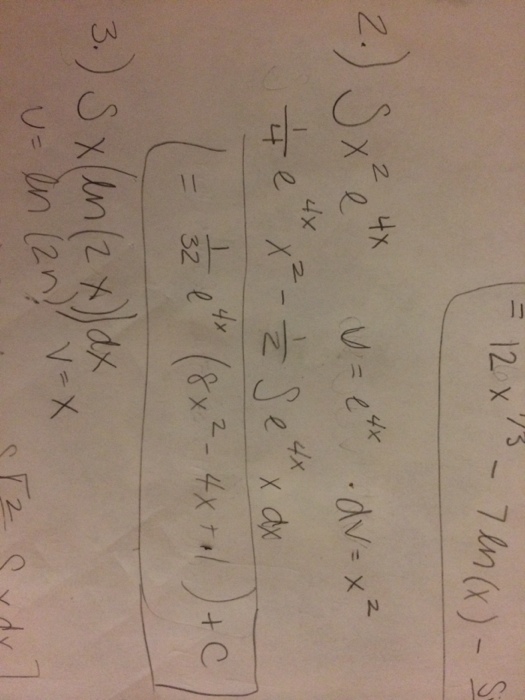 = 12x^1/3 - 7 ln(x) -
2.) ∫x² e^4x u = e^4x · dv = x²
1/4 e^4x x² - 1/2 ∫e^4x x dx
= 1/32 e^4x (8x² - 4x + 1) + C
3.) ∫x(ln(2x))dx
u = ln(2n) v = x